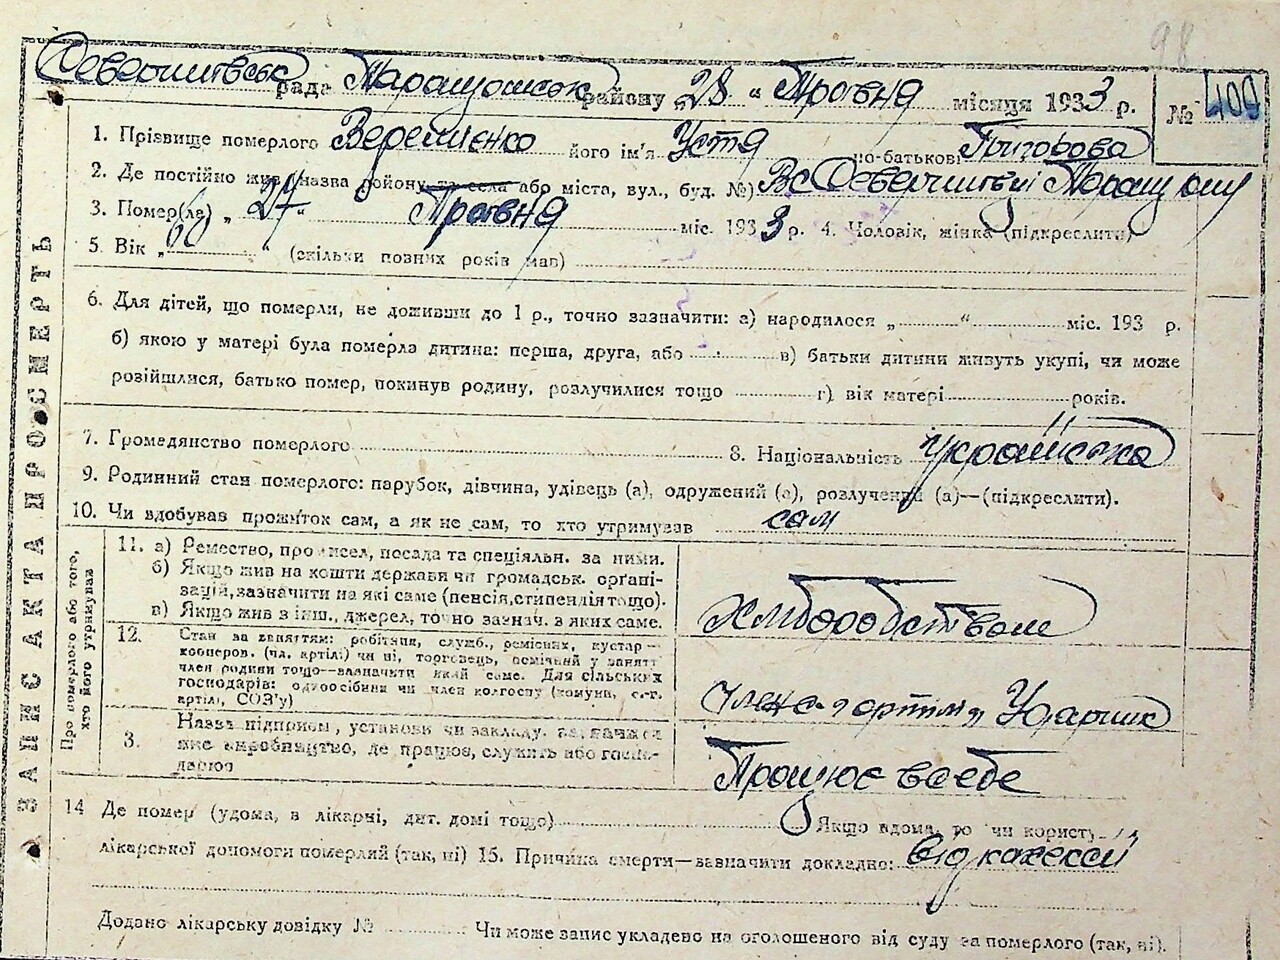 98
рада Таращанськ району „28 " Травня місяця 1933 р. № 409
1. Прізвище померлого Веремієнко його ім'я Устя по-батькові Григорова
2. Де постійно жив (назва району, та села або міста, вул., буд. №)
3. Помер(ла) „ 27 " Травня міс. 1933 р. 4. Чоловік, жінка (підкреслити)
5. Вік „ 60 " (скільки повних років мав)
6. Для дітей, що померли, не доживши до 1 р., точно зазначити: а) народилося „ " міс. 193 р.
б) якою у матері була померла дитина: перша, друга, або в) батьки дитини живуть укупі, чи може
розійшлися, батько помер, покинув родину, розлучилися тощо г) вік матері років.
7. Громадянство померлого 8. Національність Українська
9. Родинний стан померлого: парубок, дівчина, удівець (а), одружений (а), розлучений (а)—(підкреслити).
10. Чи здобував прожиток сам, а як не сам, то хто утримував сам
ЗАПИС АКТА ПРО СМЕРТЬ
Про померлого або того,
хто його утримував
11. а) Ремество, промисел, посада та спеціяльн. за ними.
б) Якщо жив на кошти держави чи громадськ. органі-
зацій, зазначити на які саме (пенсія, стипендія тощо).
в) Якщо жив з інш. джерел, точно зазнач. з яких саме.
хліборобством
12. Стан за заняттям: робітник, служб., ремісник, кустар—
кооперов. (чл. артілі) чи ні, торговець, помічний у занятті
член родини тощо—зазначити який саме. Для сільських
господарів: одноосібник чи член колгоспу (комуна, с.-г.
артіль, СОЗ'у)
артіля Ударник
3. Назва підприєм, установи чи закладу, зазначити
яке виробництво, де працює, служить або госпо-
дарює
Працює в себе
14 Де помер (удома, в лікарні, дит. домі тощо) Якщо вдома, то чи корист
лікарської допомоги померлий (так, ні) 15. Причина смерти—зазначити докладно: від кахексії
Додано лікарську довідку № Чи може запис укладено на оголошеного від суду за померлого (так, ні).